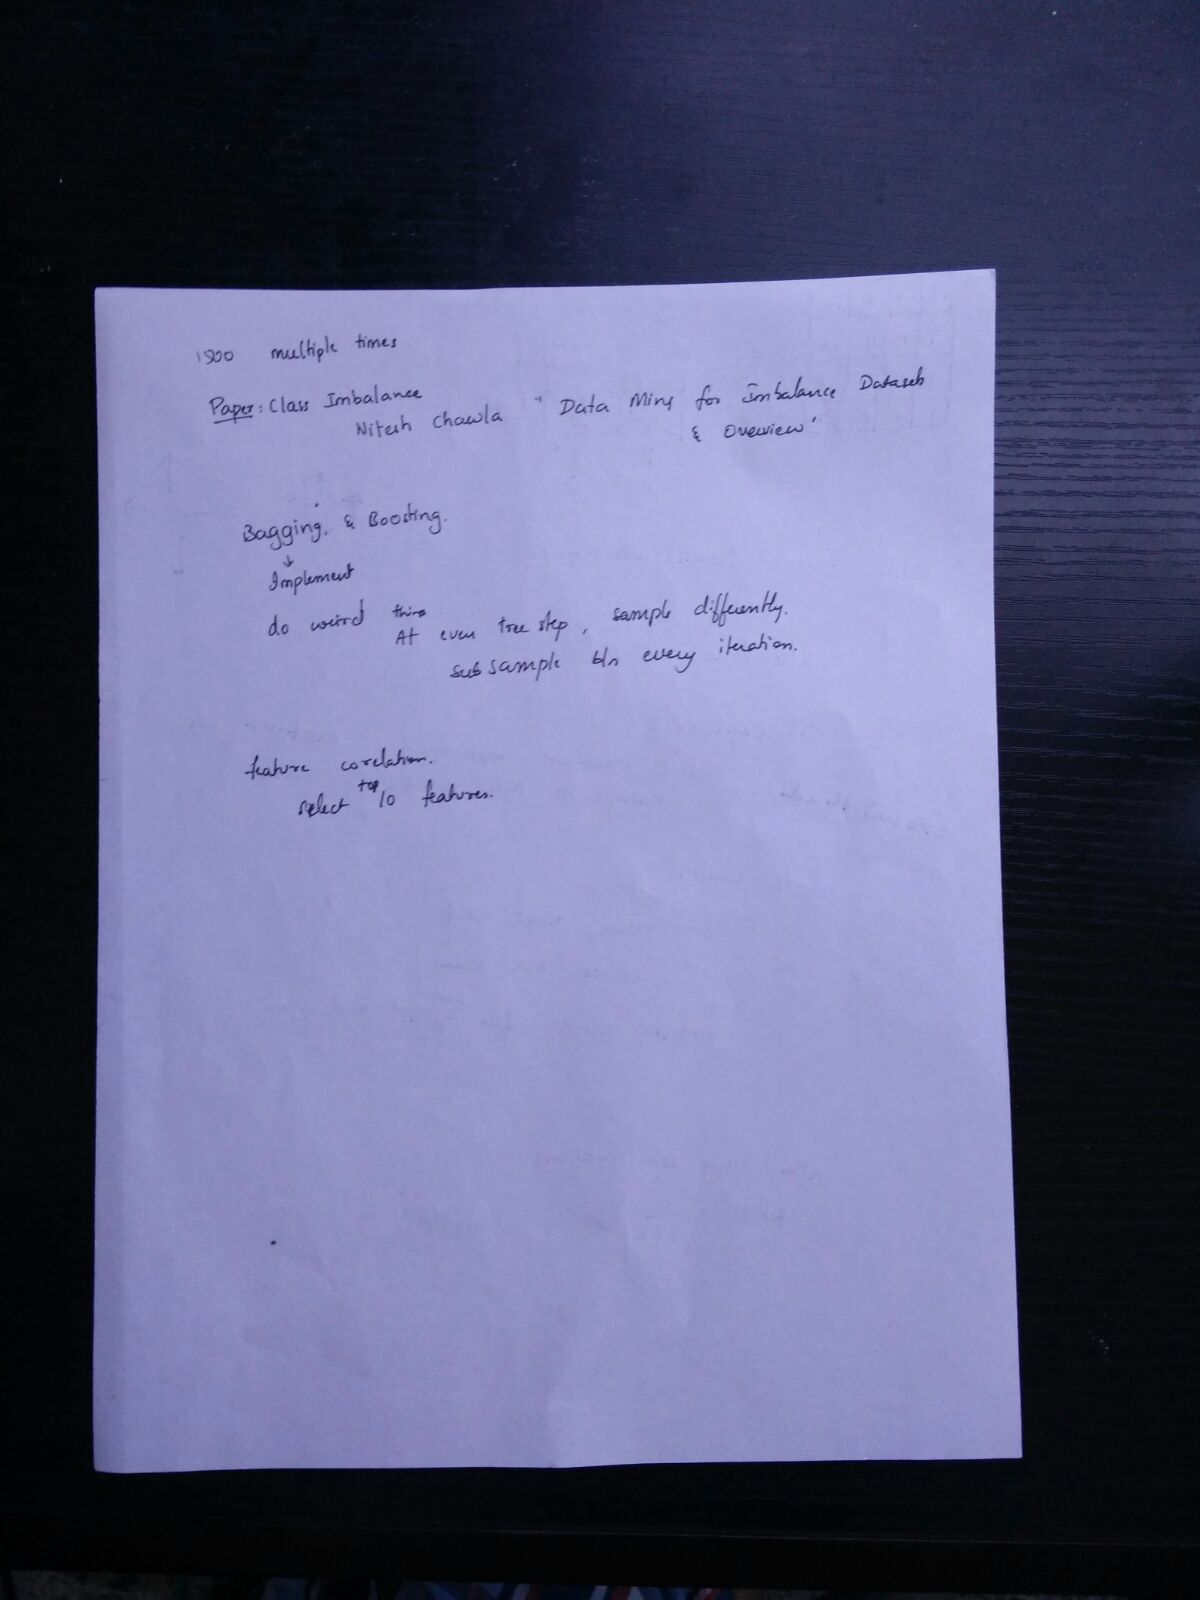 1500 multiple times
Paper: Class Imbalance
Nitesh Chawla " Data Ming for Imbalance Datasets
& Overview"
Bagging, & Boosting.
↓
Implement
do weird thing
At even tree step, sample differently.
subsample b/n every iteration.
feature corelation.
select top 10 features.